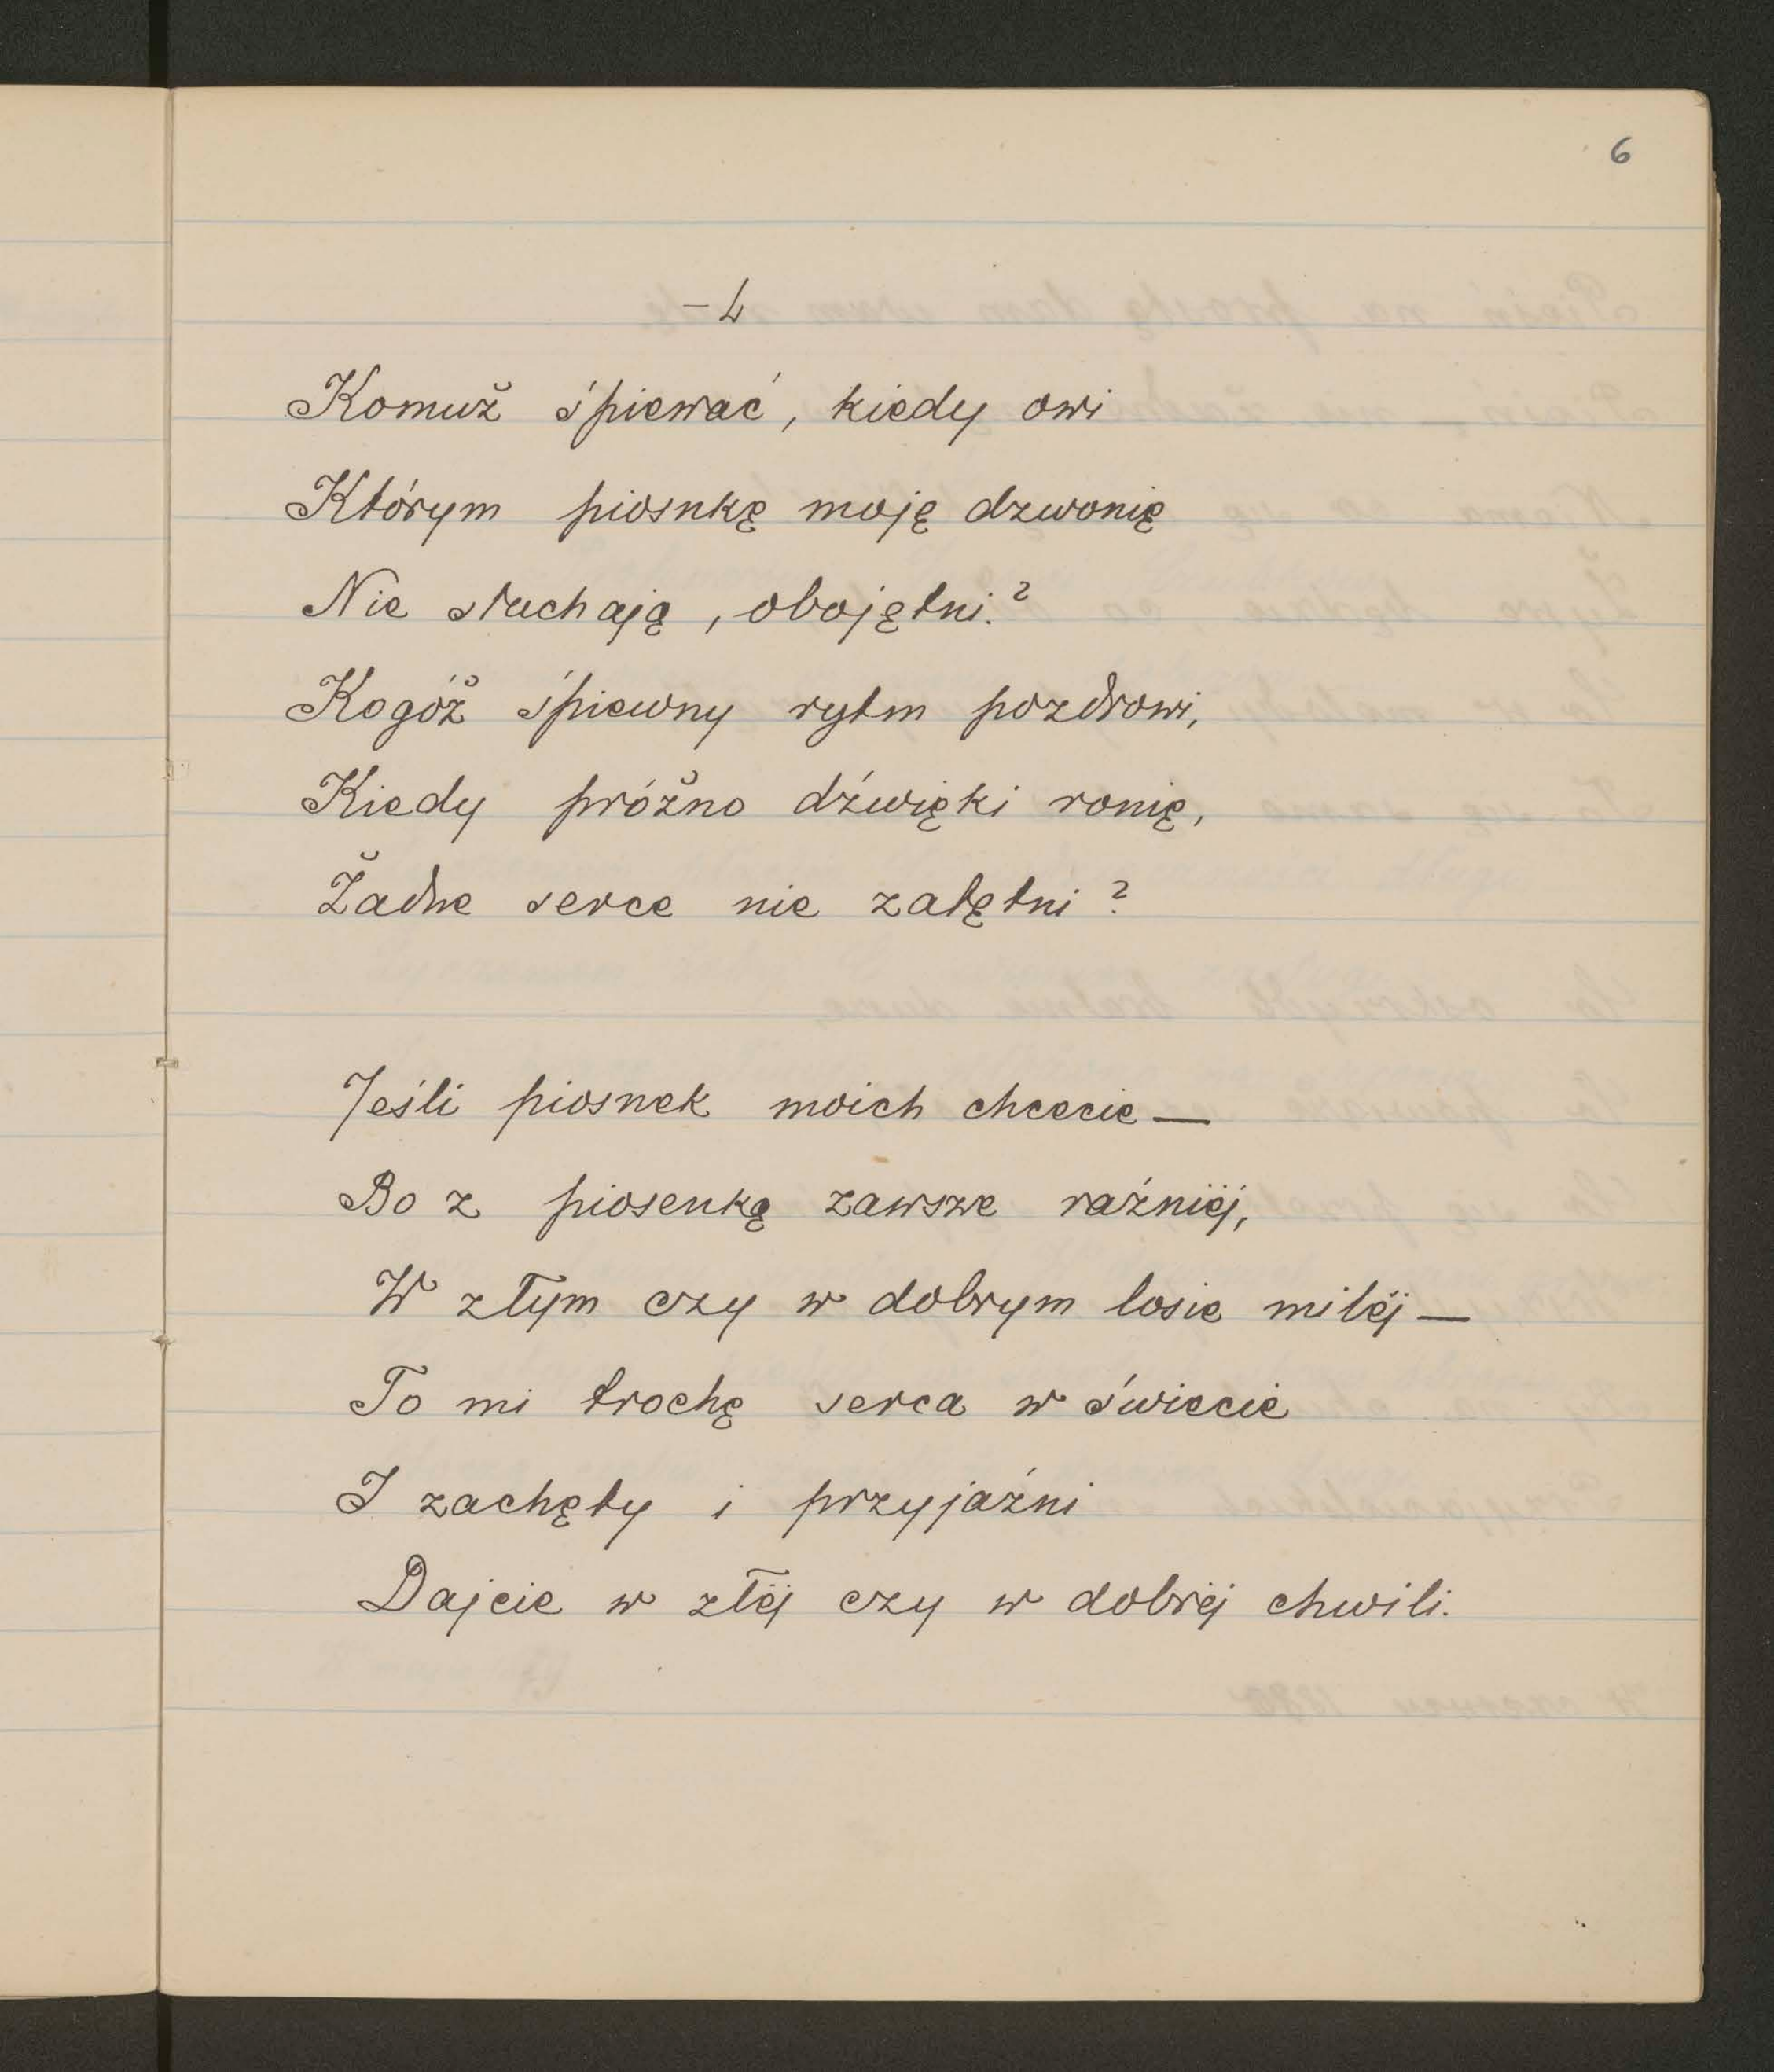 6
Komuż śpiewać, kiedy owi
Którym piosnkę moję dzwonię
Nie słuchają, obojętni?
Kogóż śpiewny rytm pozdrowi,
Kiedy próżno dźwięki ronię,
Żadne serce nie zatętni?
Jeśli piosnek moich chcecie —
Bo z piosenką zawsze raźniéj,
W złym czy w dobrym losie miléj —
To mi trochę serca w świecie
I zachęty i przyjaźni
Dajcie w złéj czy w dobréj chwili.